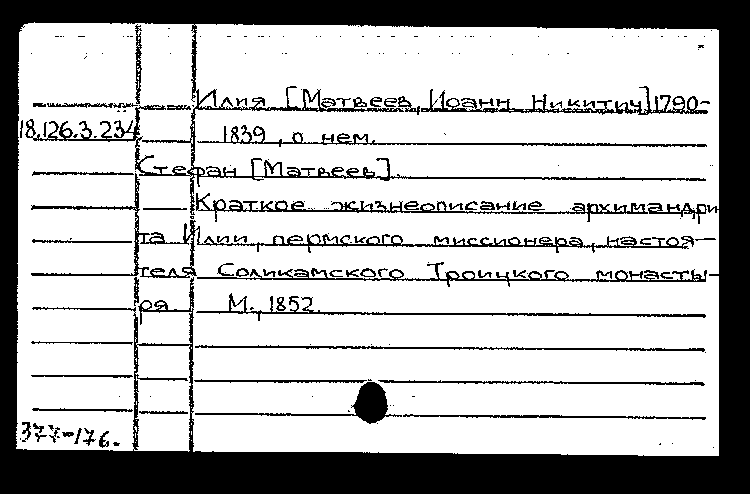 Илия [Матвеев, Иоанн Никитич] 1790-
18.126.3.234 1839, о нем.
Стефан [Матвеев].
Краткое жизнеописание архимандри
та Илии, пермского миссионера, настоя-
теля Соликамского Троицкого монасты-
ря. М., 1852.
377-176.